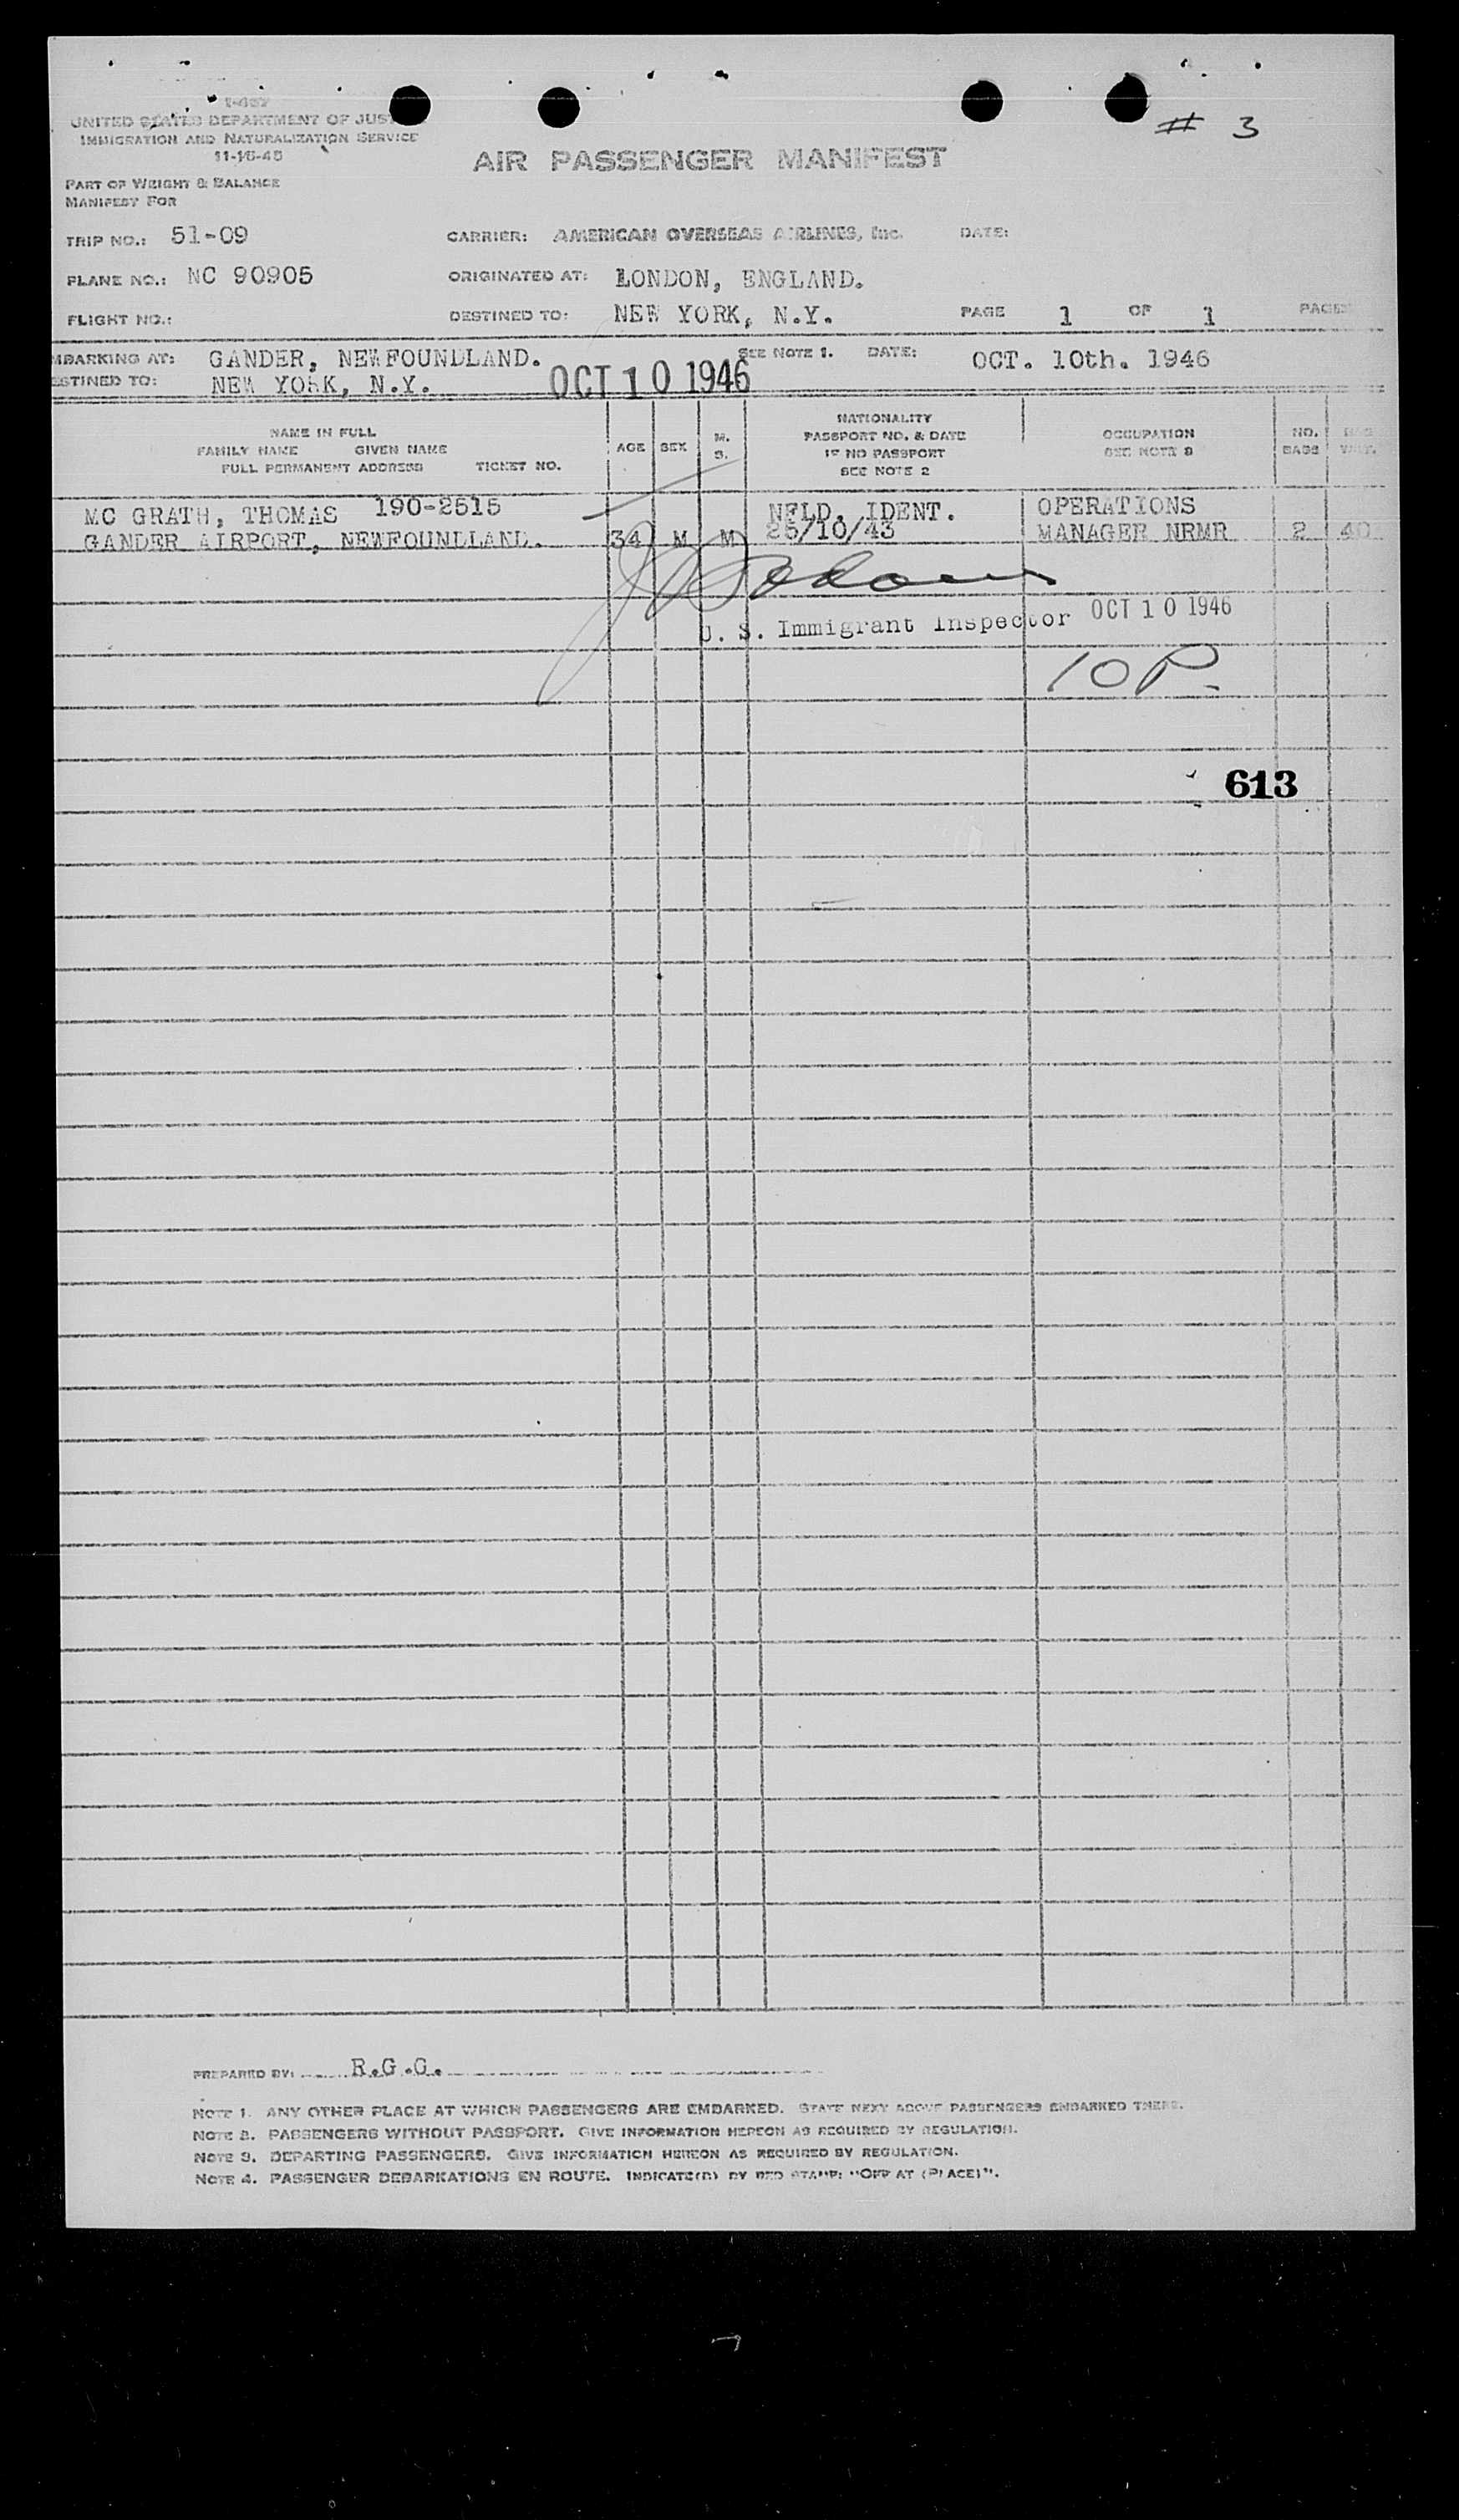 # 3
I-457
UNITED STATES DEPARTMENT OF JUST
IMMIGRATION AND NATURALIZATION SERVICE
11-16-45
AIR PASSENGER MANIFEST
PART OF WEIGHT & BALANCE
MANIFEST FOR
TRIP NO.: 51-09 CARRIER: AMERICAN OVERSEAS AIRLINES, Inc. DATE:
PLANE NO.: NC 90905 ORIGINATED AT: LONDON, ENGLAND.
FLIGHT NO.: DESTINED TO: NEW YORK, N.Y. PAGE 1 OF 1 PAGES
MBARKING AT: GANDER, NEWFOUNDLAND. SEE NOTE 1. DATE: OCT. 10th. 1946
ESTINED TO: NEW YORK, N.Y. OCT 10 1946
NAME IN FULL
FAMILY NAME GIVEN NAME
FULL PERMANENT ADDRESS TICKET NO.
AGE SEX M. S.
NATIONALITY
PASSPORT NO. & DATE
IF NO PASSPORT
SEE NOTE 2
OCCUPATION
SEE NOTE 3
NO.
BAGS
MC GRATH, THOMAS 190-2515 NFLD. IDENT. OPERATIONS
GANDER AIRPORT, NEWFOUNDLAND. 34 M M 25/10/43 MANAGER NRMR 2 40
U. S. Immigrant Inspector OCT 10 1946
10 P.
613
PREPARED BY: R.G.G.
NOTE 1. ANY OTHER PLACE AT WHICH PASSENGERS ARE EMBARKED. STATE NEXT ABOVE PASSENGERS EMBARKED THERE.
NOTE 2. PASSENGERS WITHOUT PASSPORT. GIVE INFORMATION HEREON AS REQUIRED BY REGULATION.
NOTE 3. DEPARTING PASSENGERS. GIVE INFORMATION HEREON AS REQUIRED BY REGULATION.
NOTE 4. PASSENGER DEBARKATIONS EN ROUTE. INDICATE(D) BY RED STAMP: "OFF AT (PLACE)".